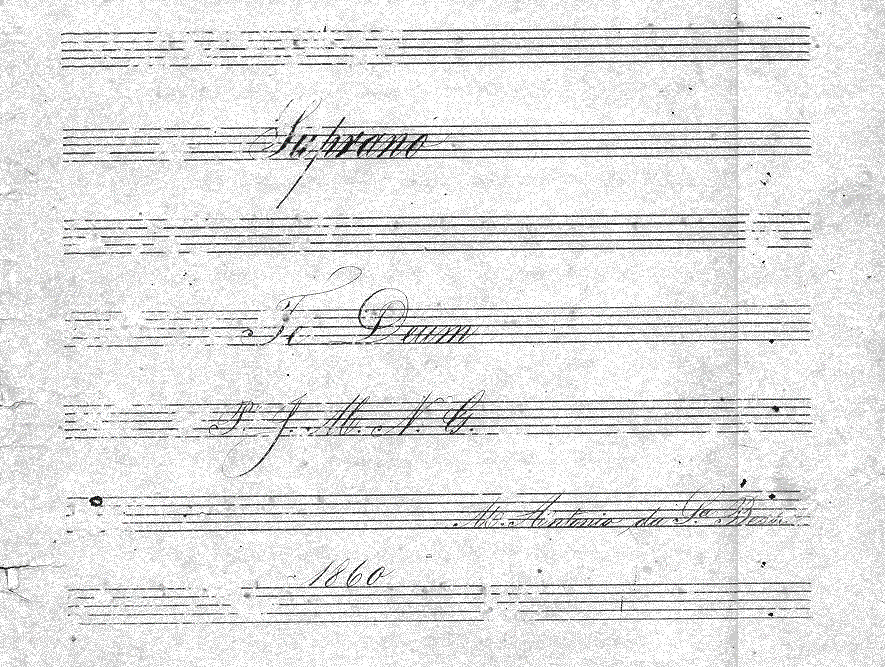 Soprano
Te Deum
P. J. M. N. G.
M. Antonio da S.ª
1860